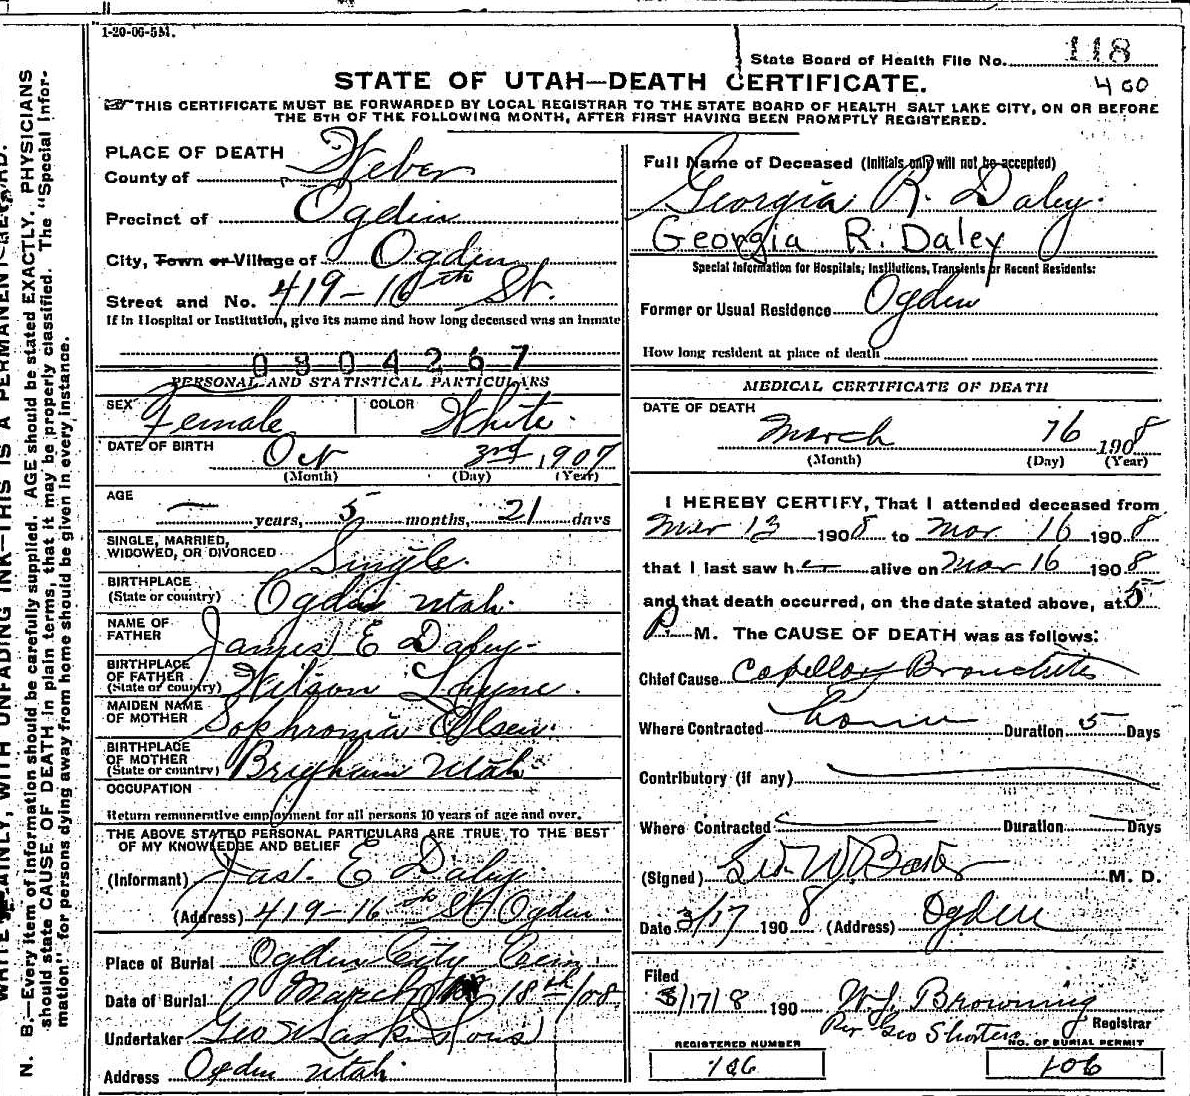 1-20-06-5M.
State Board of Health File No. 118
STATE OF UTAH—DEATH CERTIFICATE.
400
THIS CERTIFICATE MUST BE FORWARDED BY LOCAL REGISTRAR TO THE STATE BOARD OF HEALTH SALT LAKE CITY, ON OR BEFORE
THE 5TH OF THE FOLLOWING MONTH, AFTER FIRST HAVING BEEN PROMPTLY REGISTERED.
PLACE OF DEATH
County of Weber
Precinct of Ogden
City, Town or Village of Ogden
Street and No. 419-16th St.
If in Hospital or Institution, give its name and how long deceased was an inmate
0804267
PERSONAL AND STATISTICAL PARTICULARS
SEX Female COLOR White
DATE OF BIRTH Oct 3rd, 1907
(Month) (Day) (Year)
AGE
— years, 5 months, 21 days
SINGLE, MARRIED,
WIDOWED, OR DIVORCED Single
BIRTHPLACE
(State or country) Ogden Utah.
NAME OF
FATHER James E Daley
BIRTHPLACE
OF FATHER
(State or country) Wilson
MAIDEN NAME
OF MOTHER Sophronia Olsen.
BIRTHPLACE
OF MOTHER
(State or country) Brigham Utah
OCCUPATION
Return remunerative employment for all persons 10 years of age and over.
THE ABOVE STATED PERSONAL PARTICULARS ARE TRUE TO THE BEST
OF MY KNOWLEDGE AND BELIEF
(Informant) Jas. E Daley
(Address) 419-16th St Ogden.
Place of Burial Ogden City Cem.
Date of Burial March 18th/08
Undertaker Geo Sons
Address Ogden Utah.
Full Name of Deceased (Initials only will not be accepted)
Georgia R. Daley.
Georgia R. Daley
Special Information for Hospitals, Institutions, Transients or Recent Residents:
Former or Usual Residence Ogden
How long resident at place of death
MEDICAL CERTIFICATE OF DEATH
DATE OF DEATH
March 16 1908
(Month) (Day) (Year)
I HEREBY CERTIFY, That I attended deceased from
Mar 13 1908 to Mar 16 1908
that I last saw her alive on Mar 16 1908
and that death occurred, on the date stated above, at 5
P. M. The CAUSE OF DEATH was as follows:
Chief Cause Capillary Bronchitis
Where Contracted home Duration 5 Days
Contributory (if any)
Where Contracted Duration Days
(Signed) M. D.
Date 3/17 1908 (Address) Ogden
Filed
3/17/8 190 W.J. Browning
Per Geo Shorten
Registrar
REGISTERED NUMBER
106
NO. OF BURIAL PERMIT
106
WRITE PLAINLY, WITH UNFADING INK—THIS IS A PERMANENT RECORD.
N. B.—Every item of information should be carefully supplied. AGE should be stated EXACTLY. PHYSICIANS
should state CAUSE OF DEATH in plain terms, that it may be properly classified. The "Special Infor-
mation" for persons dying away from home should be given in every instance.